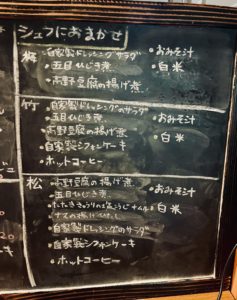 シェフにおまかせ
梅 ・自家製ドレッシングサラダ ・おみそ汁
・五目ひじき煮 ・白米
・高野豆腐の揚げ煮
竹 ・自家製ドレッシングのサラダ ・おみそ汁
・五目ひじき煮
・高野豆腐の揚げ煮 ・白米
・自家製シフォンケーキ
・ホットコーヒー
松 ・高野豆腐の揚げ煮 ・おみそ汁
・五目ひじき煮
・たたききゅうりの塩こうじナムル ・白米
・ナスの
・自家製ドレッシングのサラダ
・自家製シフォンケーキ
・ホットコーヒー